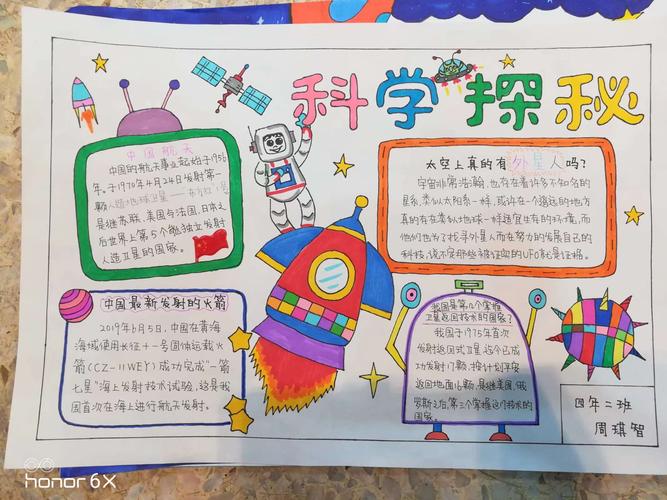 科学探秘
中国航天
中国的航天事业起始于1956
年。于1970年4月24日发射第一
颗人造地球卫星——东方红1号
是继苏联、美国与法国、日本之
后世界上第5个能独立发射
人造卫星的国家。
太空上真的有外星人吗?
宇宙非常浩瀚,也存在着许多不知名的
星系,类似太阳系一样,或许在一个遥远的地方
真的存在类似地球一样适宜生存的环境,而
他们也为了找寻外星人而在努力的发展自己的
科技,说不定那些被证实的UFO就是证据。
中国最新发射的火箭
2019年6月5日,中国在黄海
海域使用长征十一号固体运载火
箭(CZ-11WEY)成功完成“一箭
七星”海上发射技术试验,这是我
国首次在海上进行航天发射。
我国是第几个掌握
卫星返回技术的国家?
我国于1975年首次
发射返回式卫星,迄今已成
功发射17颗,按计划平安
返回地面16颗,是继美国、俄
罗斯之后,第三个掌握这门技术的
国家
四年二班
周琪智
honor 6X